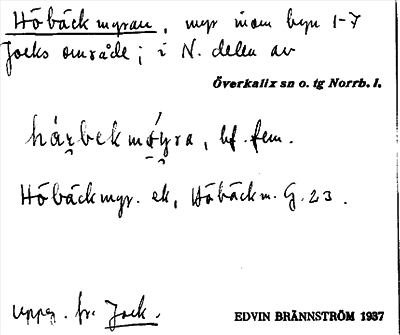 Höbäckmyran, myr inom byn 1-7
Jocks område; i N. delen av
Överkalix sn o. tg Norrb. l.
hárbekmýra, bf. fem.
Höbäckmyr. ek, Höbäckm. G. 23.
Uppg. fr. Jock.
EDVIN BRÄNNSTRÖM 1937